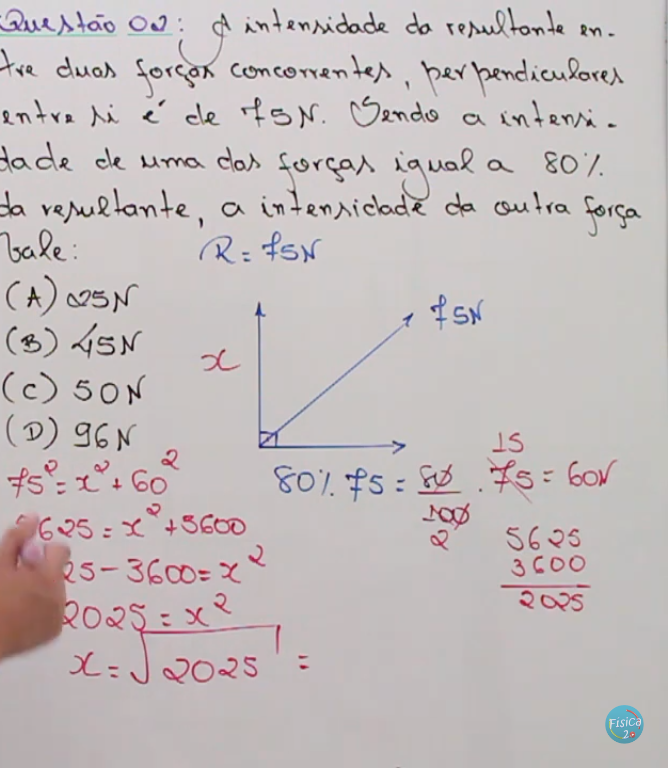 Questão 02: A intensidade da resultante en-
tre duas forças concorrentes, perpendiculares
entre si é de 75N. Sendo a intensi-
dade de uma das forças igual a 80%
da resultante, a intensidade da outra força
vale:
R = 75N
(A) 25N
(B) 45N
(C) 50N
(D) 96N
75N
x
75² = x² + 60²
80%. 75 = 80/100 . 75 = 60N
15
2
5625 = x² + 3600
25 - 3600 = x²
2025 = x²
x = √2025 =
5625
3600
2025
Física
2.0